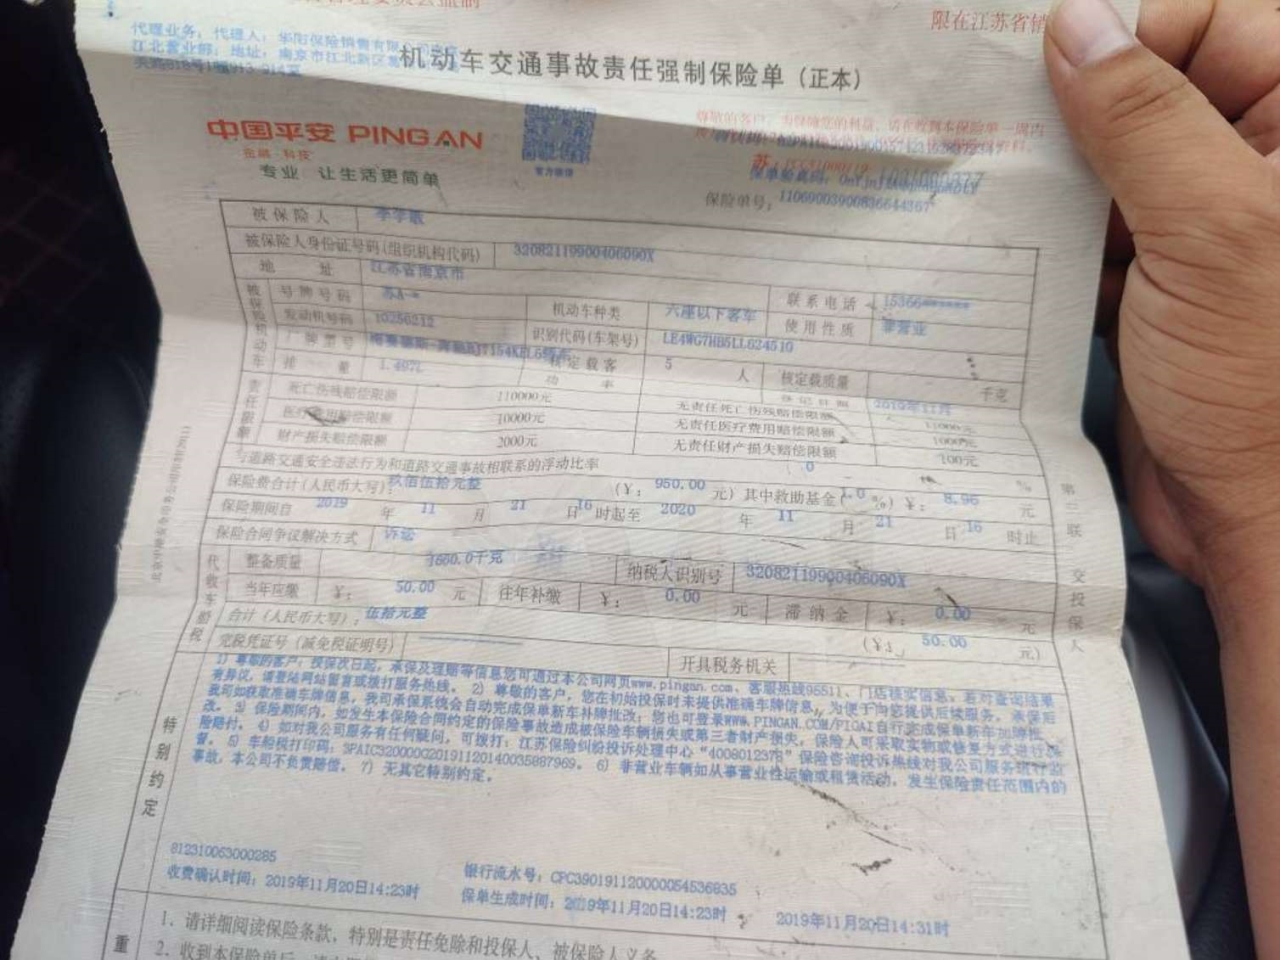 限在江苏省销
代理业务，代理人：华阳保险销售有限
江北营业部；地址：南京市江北新区
机动车交通事故责任强制保险单（正本）
中国平安 PING AN
金融·科技
专业 让生活更简单
尊敬的客户：为保障您的利益，请在收到本保险单一周内
保单验真码：
保险单号：11069003900836644367
被保险人
被保险人身份证号码(组织机构代码) 32082119900406090X
地址 江苏省南京市 联系电话 15366******
号牌号码 苏A-* 机动车种类 六座以下客车 使用性质 非营业
发动机号码 10256212 识别代码(车架号) LE4WG7HB5LL624510
厂牌型号 核定载客 5 人 核定载质量 千克
排量 1.497L 功率 2019年11月
被保险机动车
死亡伤残赔偿限额 110000元 无责任死亡伤残赔偿限额 11000元
医疗费用赔偿限额 10000元 无责任医疗费用赔偿限额 1000元
财产损失赔偿限额 2000元 无责任财产损失赔偿限额 100元
责任限额
与道路交通安全违法行为和道路交通事故相联系的浮动比率 0 %
保险费合计(人民币大写)：玖佰伍拾元整 (¥：950.00 元) 其中救助基金(1.0 %) ¥：8.96 元
保险期间自 2019 年 11 月 21 日 16 时起至 2020 年 11 月 21 日 16 时止
保险合同争议解决方式 诉讼
整备质量 1660.0千克 纳税人识别号 32082119900406090X
当年应缴 ¥：50.00 元 往年补缴 ¥：0.00 元 滞纳金 ¥：0.00 元
合计(人民币大写)：伍拾元整 (¥：50.00 元)
完税凭证号（减免税证明号） 开具税务机关
代收车船税
第三联 交投保人
特别约定
1) 尊敬的客户：投保次日起，承保及理赔等信息您可通过本公司网页www.pingan.com、客服热线95511、门店核实信息，若对查询结果
有异议，请登陆网站留言或拨打服务热线。2) 尊敬的客户，您在初始投保时未提供准确车牌信息，为便于为您提供后续服务，承保后
我司如获取准确车牌信息，我司承保系统会自动完成保单新车补牌批改；您也可登录WWW.PINGAN.COM/PIGAI自行完成保单新车加牌批
改。3) 保险期间内，如发生本保险合同约定的保险事故造成被保险车辆损失或第三者财产损失，保险人可采取实物或修复方式进行保
险赔付。4) 如对我公司服务有任何疑问，可拨打：江苏保险纠纷投诉处理中心“4008012378”保险咨询投诉热线对我公司服务进行监
督。5) 车船税打印码：3PAIC320000020191120140035887969。6) 非营业车辆如从事营业性运输或租赁活动，发生保险责任范围内的
事故，本公司不负责赔偿。7) 无其它特别约定。
812310063000285
收费确认时间：2019年11月20日14:23时
银行流水号：CPC390191120000054536835
保单生成时间：2019年11月20日14:23时
2019年11月20日14:31时
重
1. 请详细阅读保险条款，特别是责任免除和投保人、被保险人义务
2. 收到本保险单后，